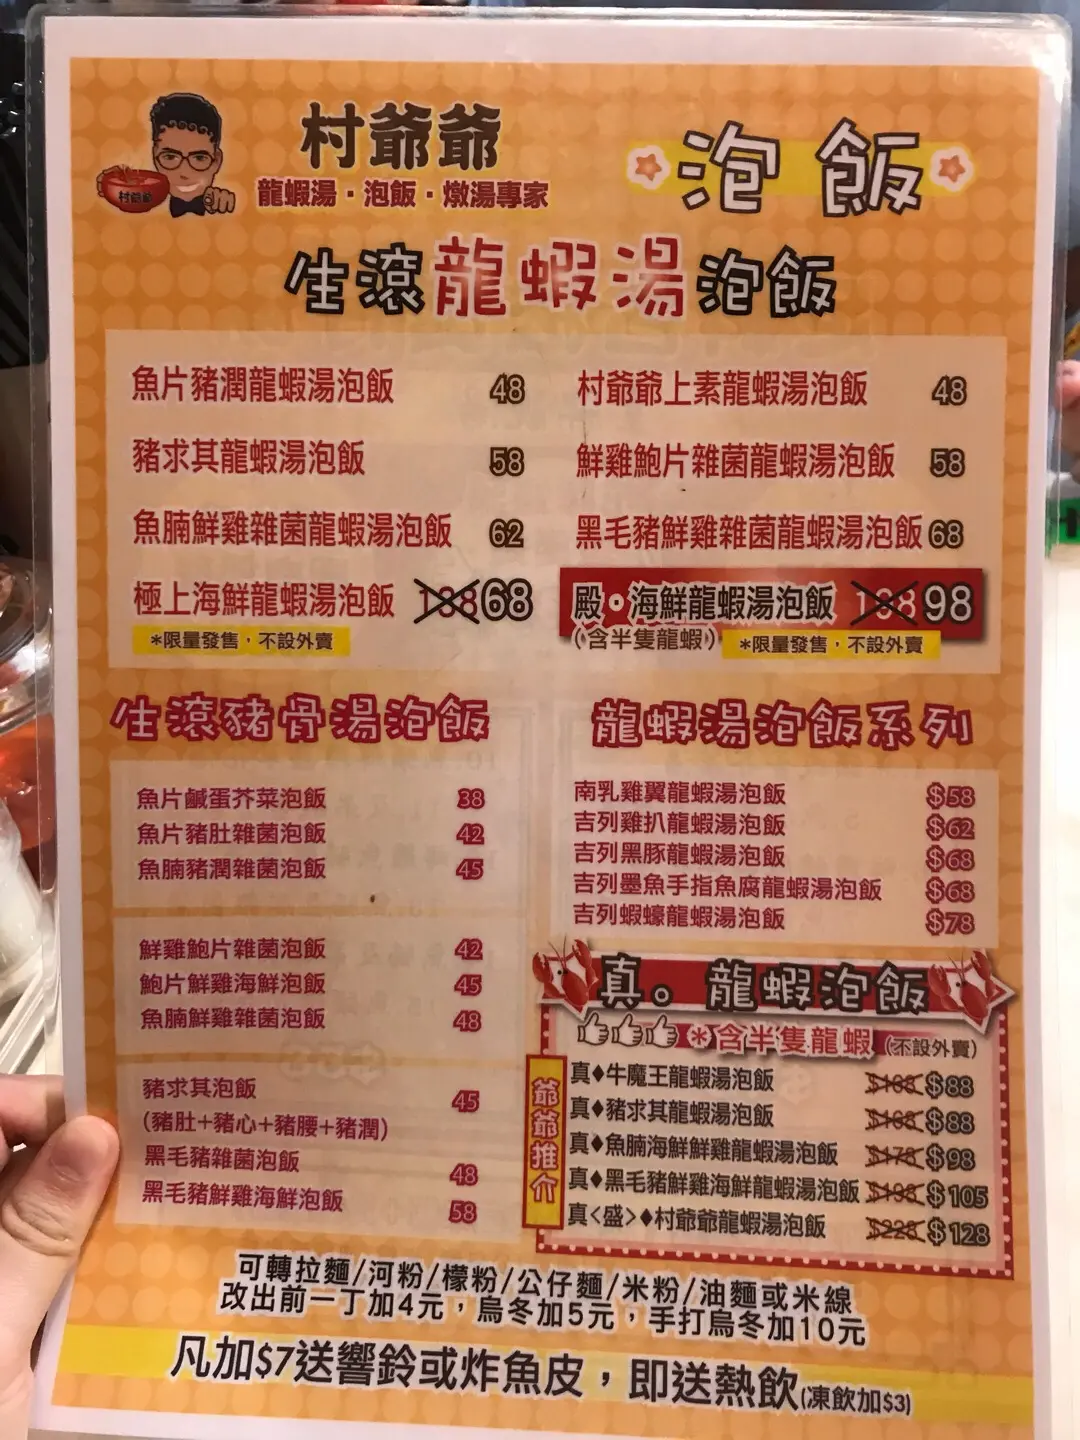 村爺爺
龍蝦湯·泡飯·燉湯專家
泡飯
村爺爺
生滾龍蝦湯泡飯
魚片豬潤龍蝦湯泡飯 48
豬求其龍蝦湯泡飯 58
魚腩鮮雞雜菌龍蝦湯泡飯 62
極上海鮮龍蝦湯泡飯 68
*限量發售，不設外賣
村爺爺上素龍蝦湯泡飯 48
鮮雞鮑片雜菌龍蝦湯泡飯 58
黑毛豬鮮雞雜菌龍蝦湯泡飯 68
殿·海鮮龍蝦湯泡飯 98
(含半隻龍蝦) *限量發售，不設外賣
生滾豬骨湯泡飯
魚片鹹蛋芥菜泡飯 38
魚片豬肚雜菌泡飯 42
魚腩豬潤雜菌泡飯 45
鮮雞鮑片雜菌泡飯 42
鮑片鮮雞海鮮泡飯 45
魚腩鮮雞雜菌泡飯 48
豬求其泡飯 45
(豬肚+豬心+豬腰+豬潤)
黑毛豬雜菌泡飯 48
黑毛豬鮮雞海鮮泡飯 58
龍蝦湯泡飯系列
南乳雞翼龍蝦湯泡飯 $58
吉列雞扒龍蝦湯泡飯 $62
吉列黑豚龍蝦湯泡飯 $68
吉列墨魚手指魚腐龍蝦湯泡飯 $68
吉列蝦蠔龍蝦湯泡飯 $78
真。龍蝦泡飯
*含半隻龍蝦 (不設外賣)
爺爺推介
真♦牛魔王龍蝦湯泡飯 $168 $88
真♦豬求其龍蝦湯泡飯 $168 $88
真♦魚腩海鮮鮮雞龍蝦湯泡飯 $178 $98
真♦黑毛豬鮮雞海鮮龍蝦湯泡飯 $198 $105
真<盛>♦村爺爺龍蝦湯泡飯 $228 $128
可轉拉麵/河粉/檬粉/公仔麵/米粉/油麵或米線
改出前一丁加4元，烏冬加5元，手打烏冬加10元
凡加$7送響鈴或炸魚皮，即送熱飲(凍飲加$3)